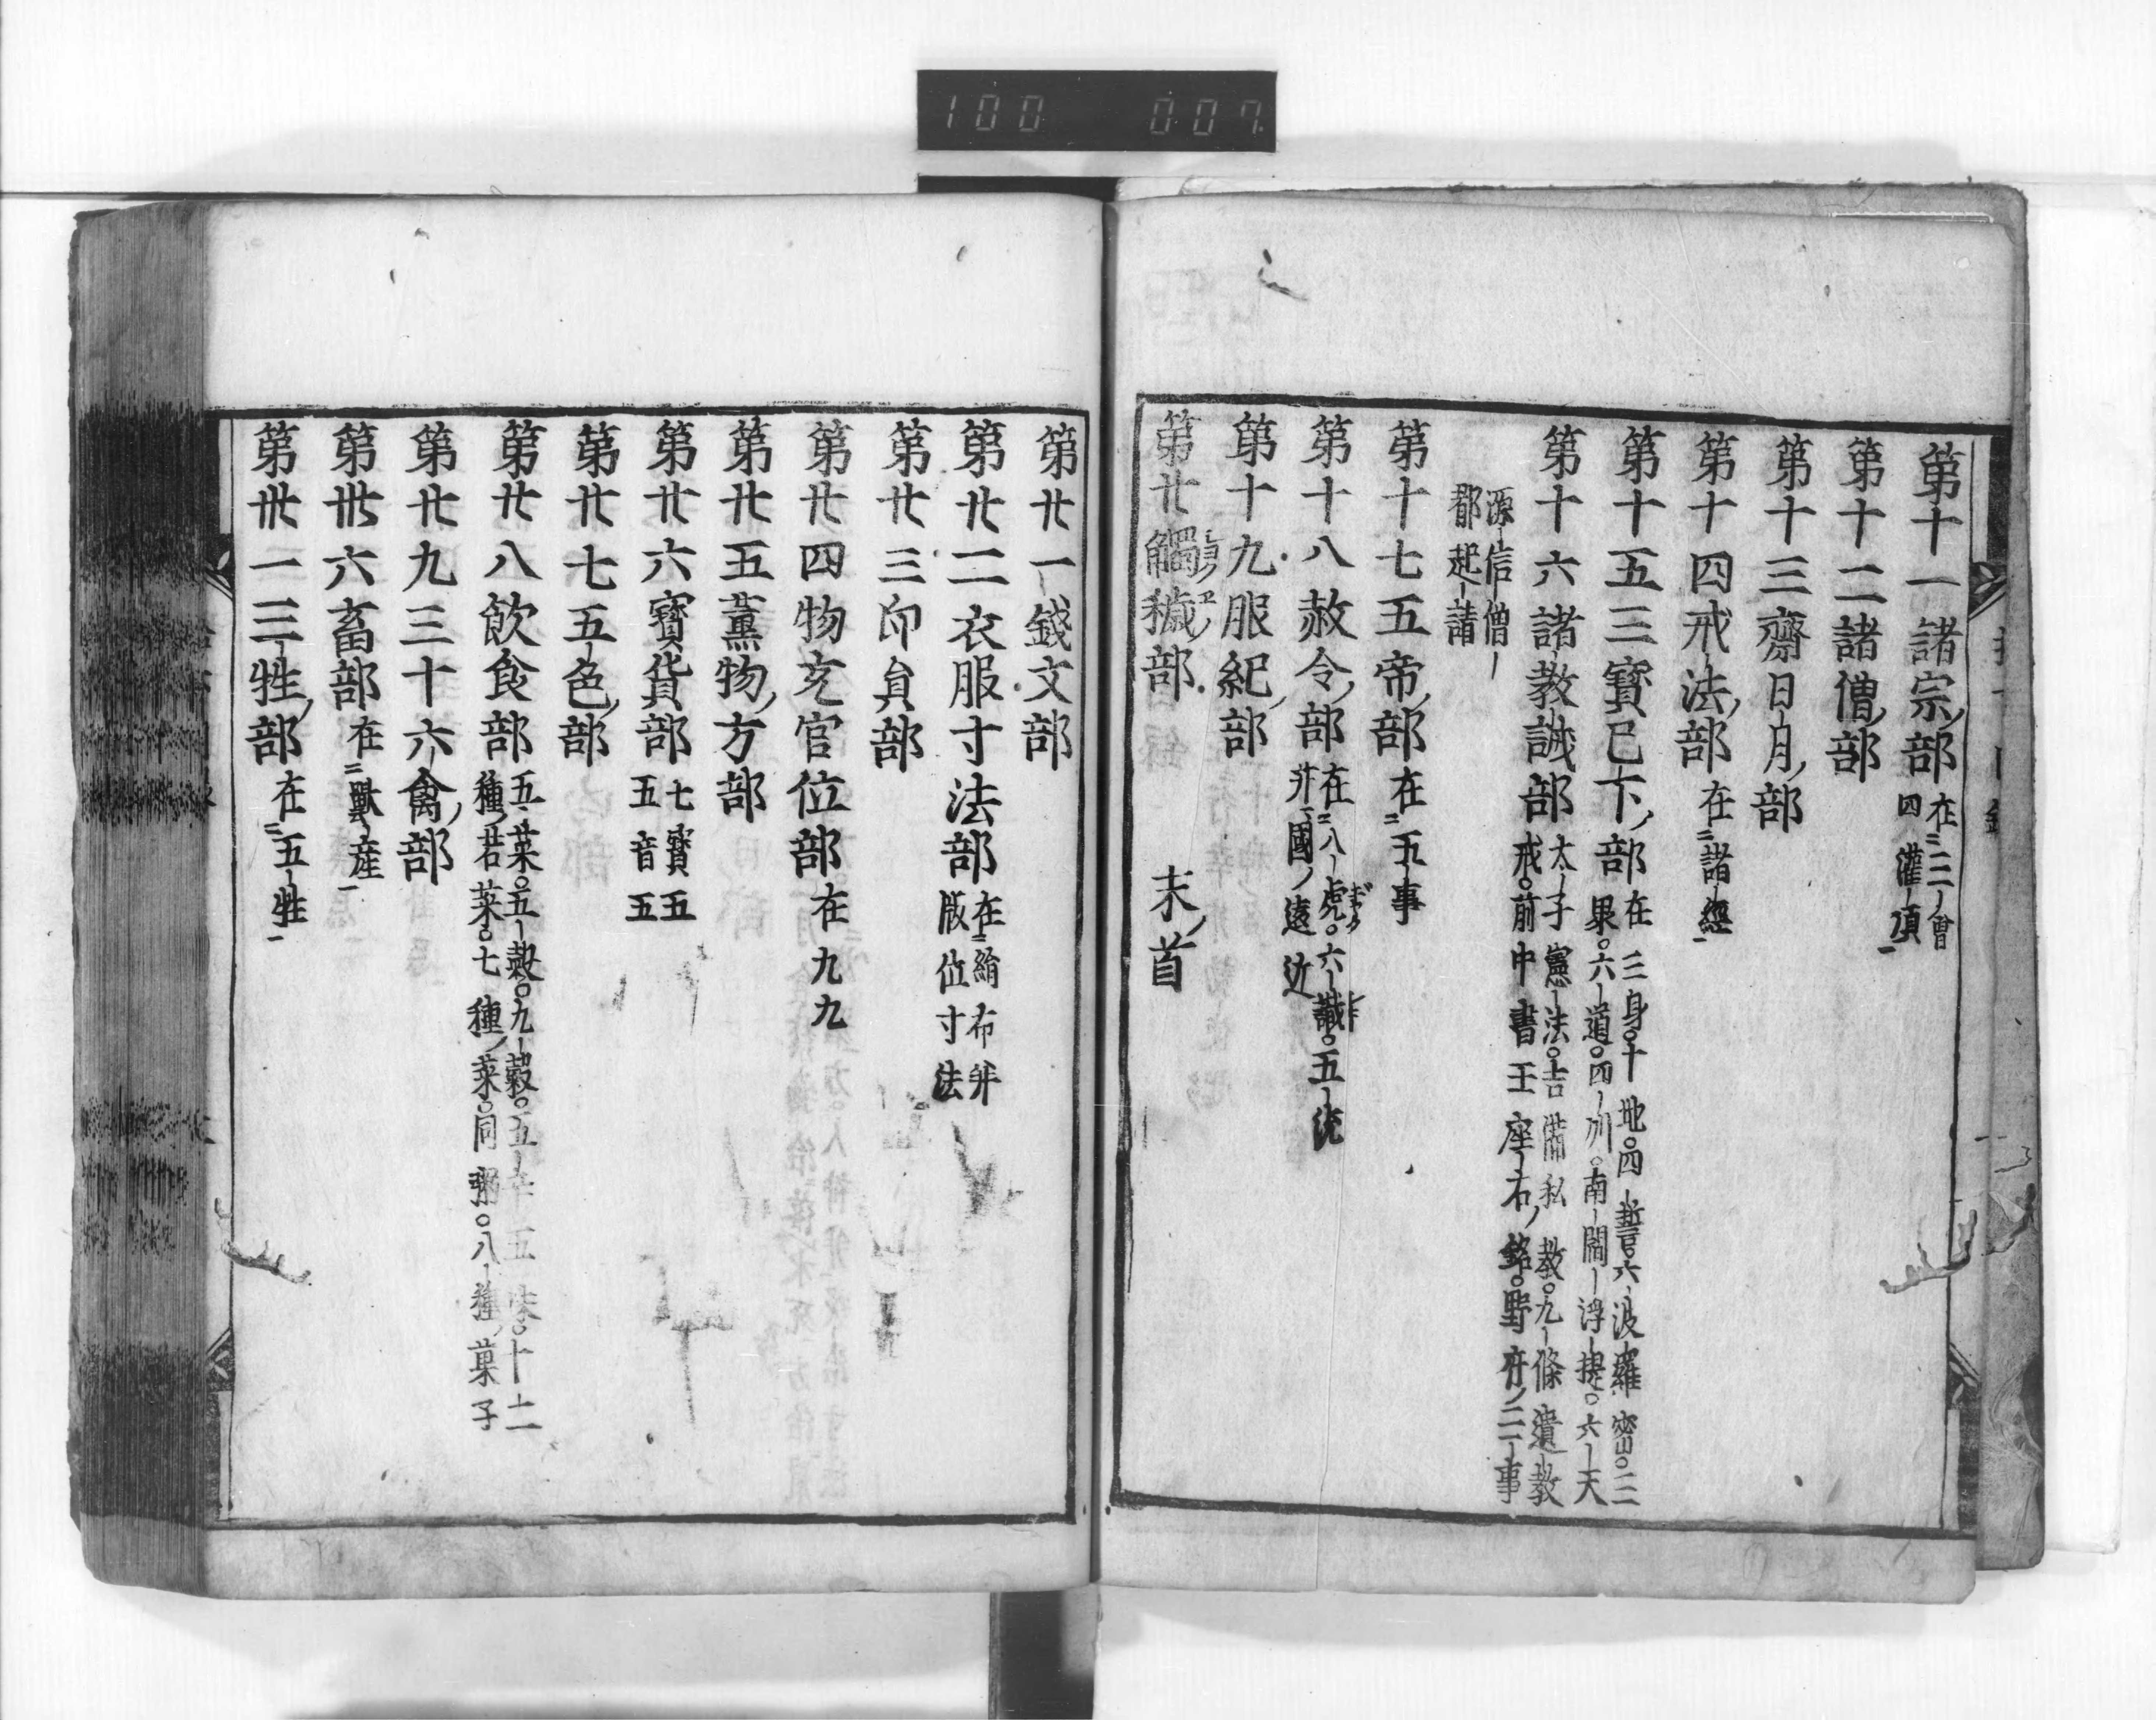 100 007
第十一諸宗部 在三會 四灌頂
第十二諸僧部
第十三齋日月部
第十四戒法部 在諸經
第十五三寶已下部 在三身。十地。四誓。六波羅密。三
果。六道。四州。南閻浮提。六天
第十六諸教誡部 太子憲法。吉備私教。九條遺教
戒。前中書王座右銘。野府三事
源信僧
都起請
第十七五帝部 在五事
第十八赦令部 在八虐。六議。五流
并國遠近
第十九服紀部
第廿觸穢部 末首
第廿一錢文部
第廿二衣服寸法部 在絹布并
版位寸法
第廿三印員部
第廿四物充官位部 在九九
第廿五薫物方部
第廿六寶貨部 七寶五
五音五
第廿七五色部
第廿八飲食部 五菜。五穀。九穀。五辛五味。十二
種若菜。七種菜。同粥。八種菓子
第廿九三十六禽部
第卅六畜部 在獸産
第卅一三牲部 在五牲